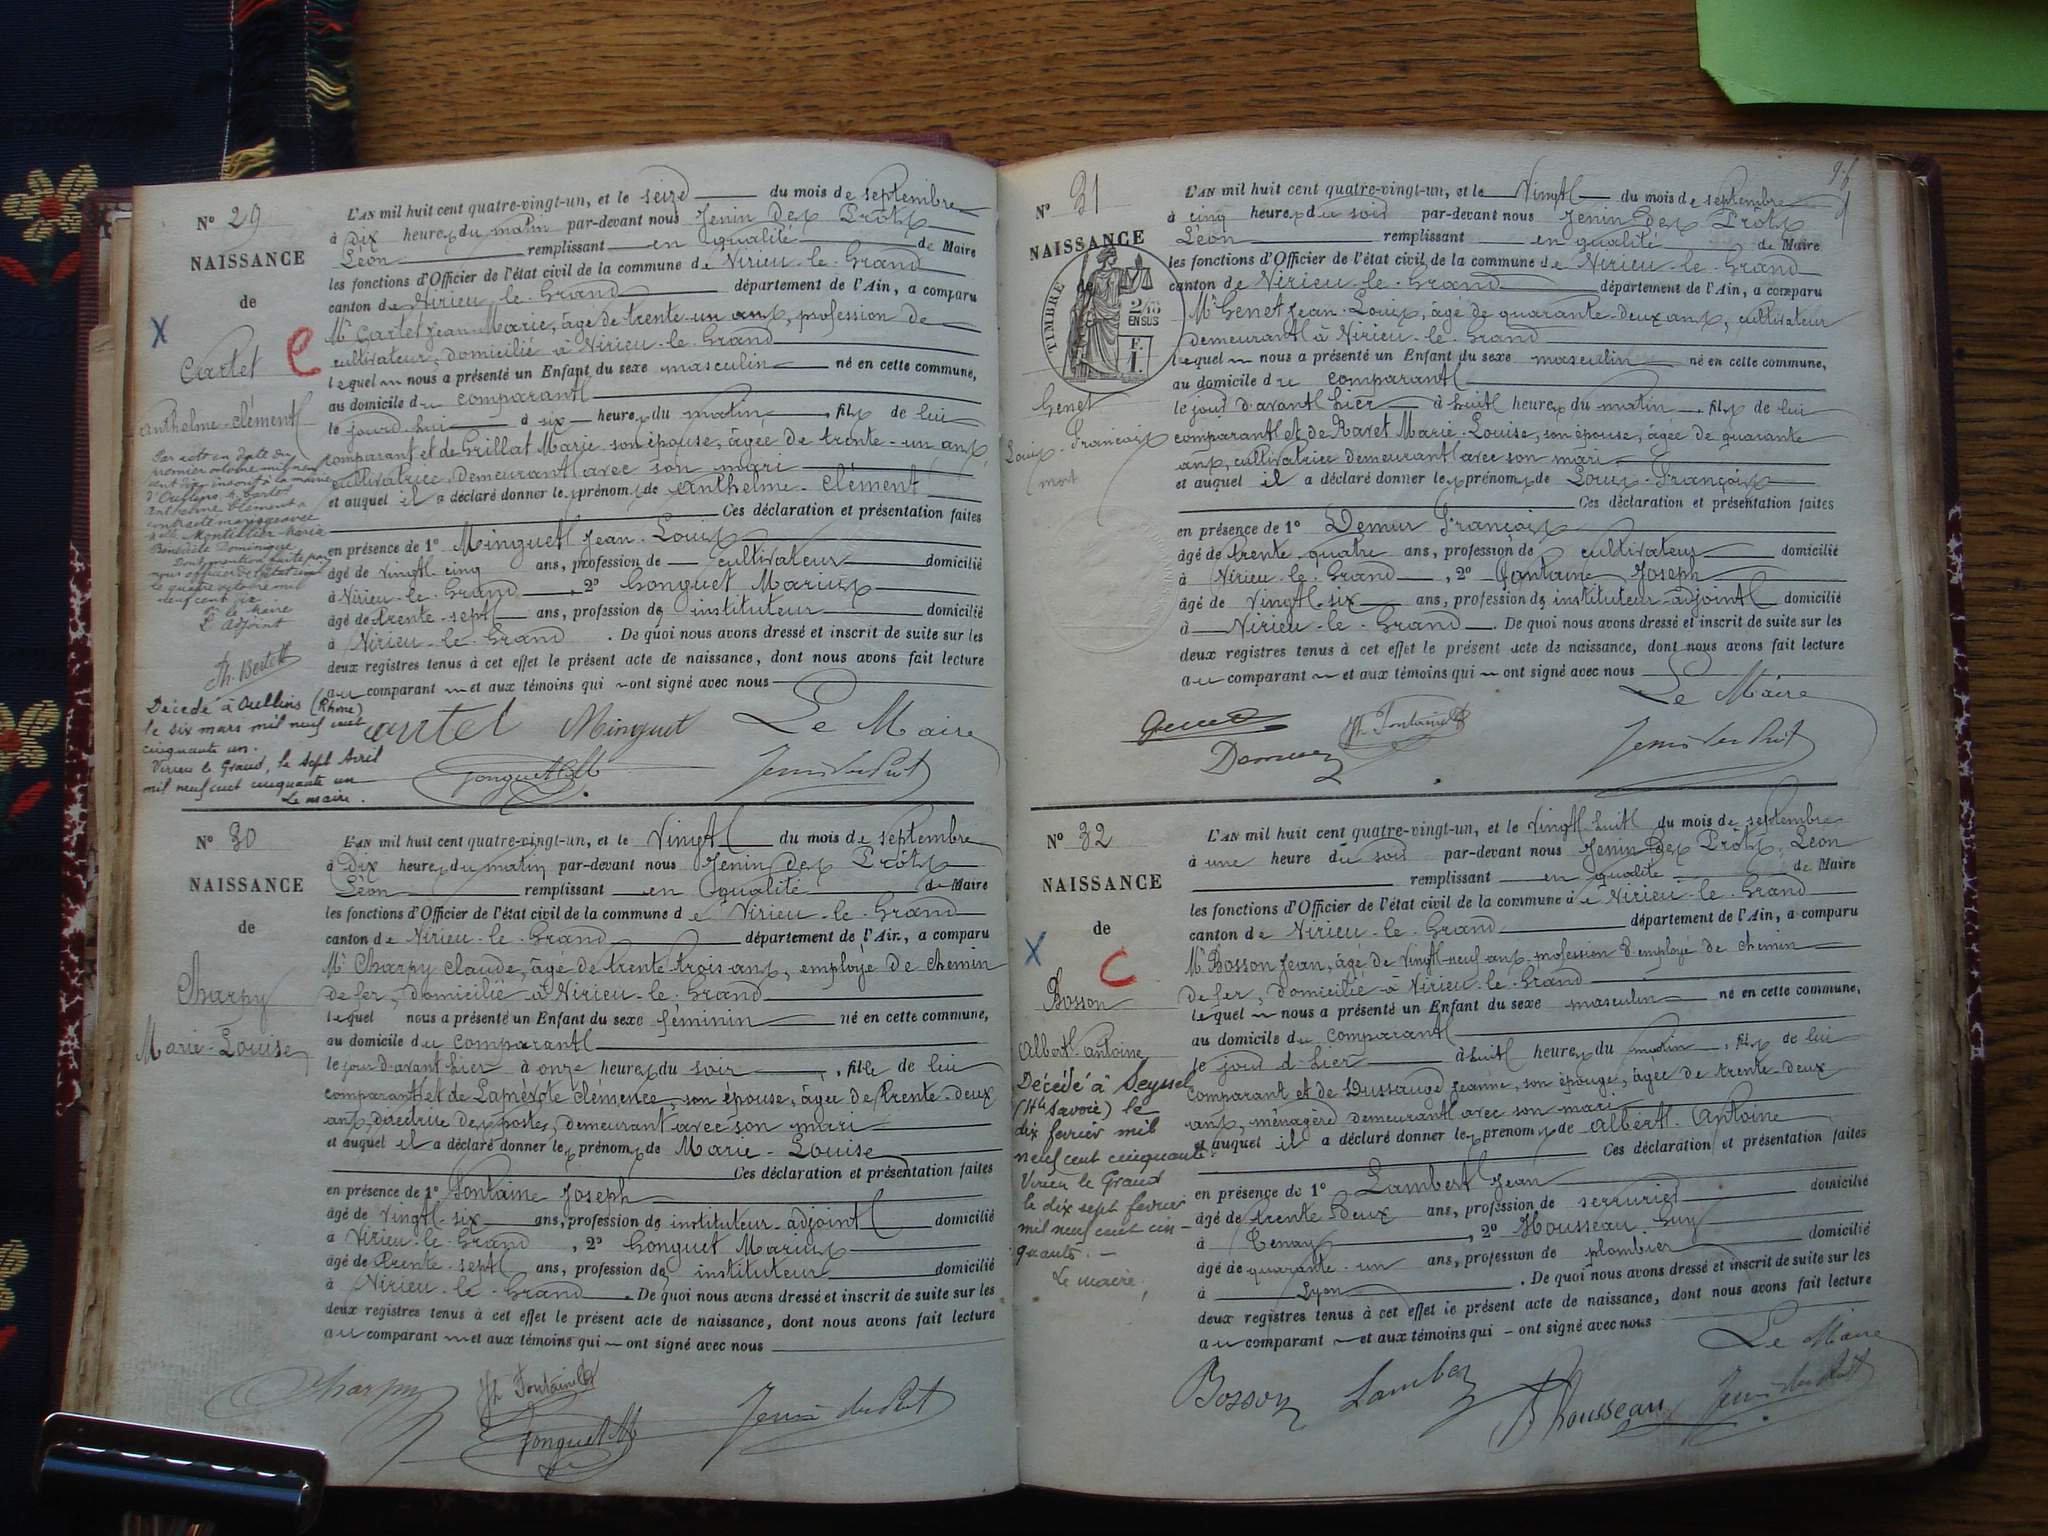 N° 29
NAISSANCE
de
Cartet
Anthelme-Clément
Par acte en date du
premier octobre mil neuf
cent dix inscrit à la mairie
d'Oullins, M. Cartet
Anthelme Clément a
contracté mariage avec
Montillier Maria
Bénédicte Dominique
Dont mention faite par
nous officier de l'état civil
le quatre octobre mil
neuf cent dix
Pr le Maire
L'adjoint
Décédé à Oullins (Rhône)
le six mars mil neuf cent
cinquante un.
Virieu le Grand, le sept Avril
mil neuf cent cinquante un
Le maire.
L'AN mil huit cent quatre-vingt-un, et le seize du mois de septembre
à dix heures du matin par-devant nous Jenin des Prôts
Léon remplissant en qualité de Maire
les fonctions d'Officier de l'état civil de la commune de Virieu-le-Grand
canton de Virieu-le-Grand département de l'Ain, a comparu
Mr Cartet Jean-Marie, âgé de trente-un ans, profession de
cultivateur, domicilié à Virieu-le-Grand
lequel nous a présenté un Enfant du sexe masculin né en cette commune,
au domicile du comparant
le jourd'hui à six heures du matin, fils de lui
comparant et de Grillat Marie son épouse, âgée de trente-un ans,
cultivatrice demeurant avec son mari
et auquel il a déclaré donner les prénoms de Anthelme-Clément
Ces déclaration et présentation faites
en présence de 1° Minguet Jean-Louis
âgé de vingt-cinq ans, profession de cultivateur domicilié
à Virieu-le-Grand, 2° Gonguet Marius
âgé de trente-sept ans, profession de instituteur domicilié
à Virieu-le-Grand. De quoi nous avons dressé et inscrit de suite sur les
deux registres tenus à cet effet le présent acte de naissance, dont nous avons fait lecture
au comparant et aux témoins qui ont signé avec nous
Cartet Minguet Le Maire
Gonguet M Jenin des Prôts
N° 30
NAISSANCE
de
Charpy
Marie-Louise
L'AN mil huit cent quatre-vingt-un, et le vingt du mois de septembre
à dix heures du matin par-devant nous Jenin des Prôts
Léon remplissant en qualité de Maire
les fonctions d'Officier de l'état civil de la commune de Virieu-le-Grand
canton de Virieu-le-Grand département de l'Ain, a comparu
Mr Charpy Claude, âgé de trente-trois ans, employé de chemin
de fer, domicilié à Virieu-le-Grand
lequel nous a présenté un Enfant du sexe féminin né en cette commune,
au domicile du comparant
le jour d'avant hier à onze heures du soir, fille de lui
comparant et de Lapièrote Clémence, son épouse, âgée de trente-deux
ans, directrice des postes, demeurant avec son mari
et auquel il a déclaré donner les prénoms de Marie-Louise
Ces déclaration et présentation faites
en présence de 1° Fontaine Joseph
âgé de vingt-six ans, profession de instituteur-adjoint domicilié
à Virieu-le-Grand, 2° Gonguet Marius
âgé de trente-sept ans, profession de instituteur domicilié
à Virieu-le-Grand. De quoi nous avons dressé et inscrit de suite sur les
deux registres tenus à cet effet le présent acte de naissance, dont nous avons fait lecture
au comparant et aux témoins qui ont signé avec nous
Charpy Jh Fontaine Jenin des Prôts
Gonguet M
N° 31
NAISSANCE
de
TIMBRE
2/10
EN SUS
F.
1.
Genet
Louis-François
mort
L'AN mil huit cent quatre-vingt-un, et le vingt du mois de septembre
à cinq heures du soir par-devant nous Jenin des Prôts
Léon remplissant en qualité de Maire
les fonctions d'Officier de l'état civil de la commune de Virieu-le-Grand
canton de Virieu-le-Grand département de l'Ain, a comparu
Mr Genet Jean-Louis, âgé de quarante-deux ans, cultivateur
demeurant à Virieu-le-Grand
lequel nous a présenté un Enfant du sexe masculin né en cette commune,
au domicile du comparant
le jour d'avant hier à huit heures du matin, fils de lui
comparant et de Ravet Marie-Louise, son épouse, âgée de quarante
ans, cultivatrice demeurant avec son mari
et auquel il a déclaré donner les prénoms de Louis-François
Ces déclaration et présentation faites
en présence de 1° Demur François
âgé de trente-quatre ans, profession de cultivateur domicilié
à Virieu-le-Grand, 2° Fontaine Joseph
âgé de vingt-six ans, profession de instituteur-adjoint domicilié
à Virieu-le-Grand. De quoi nous avons dressé et inscrit de suite sur les
deux registres tenus à cet effet le présent acte de naissance, dont nous avons fait lecture
au comparant et aux témoins qui ont signé avec nous
Le Maire
Genet Jh Fontaine
Demur Jenin des Prôts
N° 32
NAISSANCE
de
Bosson
Albert-Antoine
Décédé à Seyssel
(Hte Savoie) le
dix février mil
neuf cent cinquante.
Virieu le Grand
le dix sept février
mil neuf cent cin-
quante.
Le maire,
L'AN mil huit cent quatre-vingt-un, et le vingt-huit du mois de septembre
à une heure du soir par-devant nous Jenin des Prôts, Léon
remplissant en qualité de Maire
les fonctions d'Officier de l'état civil de la commune de Virieu-le-Grand
canton de Virieu-le-Grand département de l'Ain, a comparu
Mr Bosson Jean, âgé de vingt-neuf ans, profession d'employé de chemin
de fer, domicilié à Virieu-le-Grand
lequel nous a présenté un Enfant du sexe masculin né en cette commune,
au domicile du comparant
le jour d'hier à huit heures du matin, fils de lui
comparant et de Dussauge Jeanne, son épouse, âgée de trente-deux
ans, ménagère demeurant avec son mari
et auquel il a déclaré donner les prénoms de Albert-Antoine
Ces déclaration et présentation faites
en présence de 1° Lambert Jean
âgé de trente deux ans, profession de serrurier domicilié
à Tenay, 2° Housseau Guy
âgé de quarante-un ans, profession de plombier domicilié
à Lyon. De quoi nous avons dressé et inscrit de suite sur les
deux registres tenus à cet effet le présent acte de naissance, dont nous avons fait lecture
au comparant et aux témoins qui ont signé avec nous
Le Maire
Bosson Lambert Housseau Jenin des Prôts